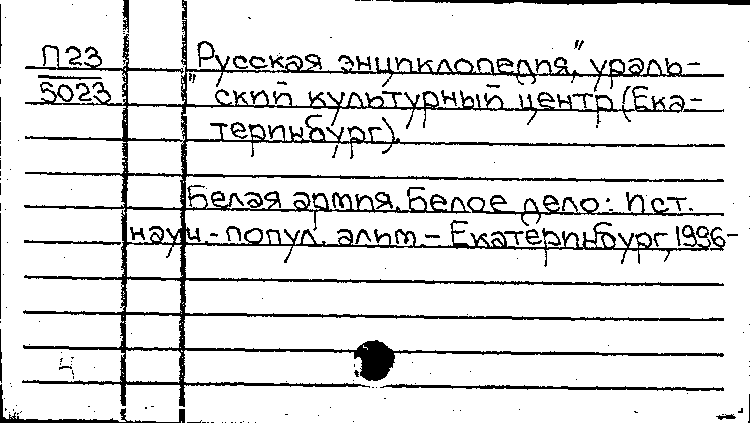 П23 "Русская энциклопедия," ураль-
5023 ский культурный центр (Ека-
теринбург).
Белая армия. Белое дело: Ист.
науч.-попул. альм - Екатеринбург, 1996-
4